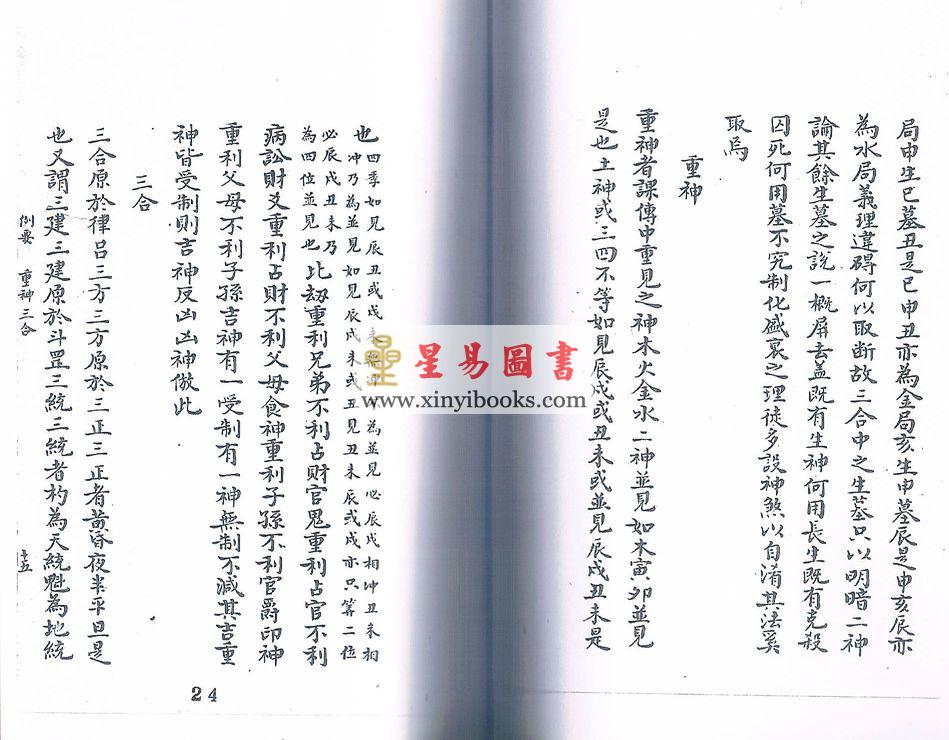 局申生巳墓丑是巳申丑亦為金局亥生申墓辰是申亥辰亦
為水局義理違碍何以取断故三合中之生墓只以明暗二神
論其餘生墓之說一概屏去盖既有生神何用長生既有克殺
囚死何用墓不究制化盛衰之理徒多設神煞以自淆其法奚
取焉
重神
重神者課傳中重見之神木火金水二神並見如木寅夘並見
是也土神或三四不等如見辰戌或丑未或並見辰戌丑未是
也
四季如見辰丑或戌未為並見必辰戌相冲丑未相
冲乃為並見如見辰戌未或丑見丑未辰或戌亦只筭二位
必辰戌丑未乃
為四位並見也
比劫重利兄弟不利占財官鬼重利占官不利
病訟財爻重利占財不利父母食神重利子孫不利官爵印神
重利父母不利子孫吉神有一受制有一神無制不減其吉重
神皆受制則吉神反凶凶神倣此
三合
三合原於律呂三方三方原於三正三正者黄昏夜半平旦是
也又謂三建三建原於斗罡三統三統者杓為天統魁為地統
例要 重神 三合
十五
24
星易圖書
www.xinyibooks.com